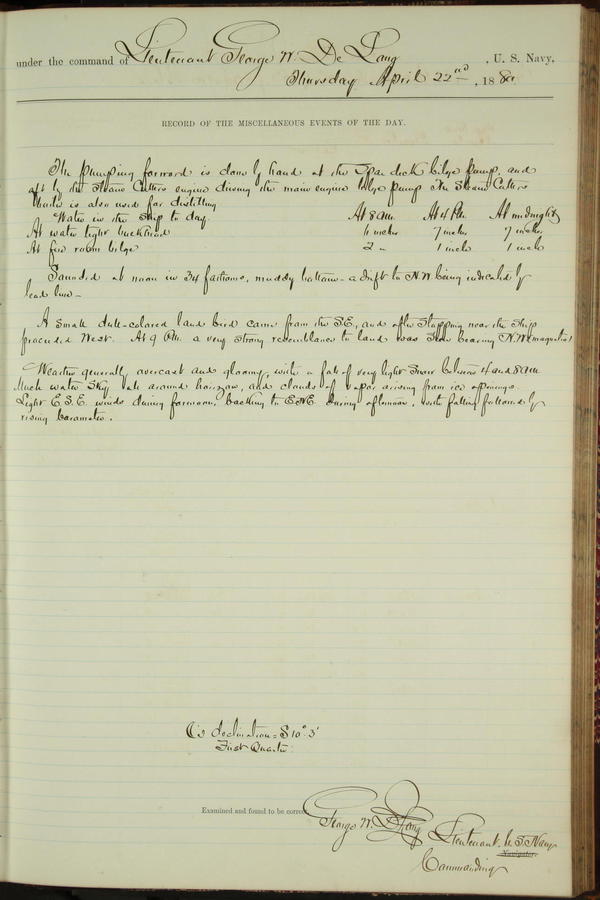 under the command of Lieutenant George W. De Long, U. S. Navy,
Thursday April 22nd, 1880
RECORD OF THE MISCELLANEOUS EVENTS OF THE DAY.
The pumping forward is done by hand at the Spar deck bilge pump, and
aft by the Steam Cutters engine driving the main engine bilge pump. The Steam Cutters
boiler is also used for distilling
Water in the Ship to day At 8 a.m. At 4 P.M. At midnight
At water tight bulkhead 6 inches 7 inches 7 inches
At fire room bilge 2 " 1 inch 1 inch
Sounded at noon in 34 fathoms, muddy bottom - a drift to N.W. being indicated by
lead line -
A small dull-colored land bird came from the S.E., and after stopping near the ship
proceeded West. At 9 P.M. a very strong resemblance to land was seen bearing N.W. (magnetic)
Weather generally overcast and gloomy, with a fall of very light snow between 4 and 8 a.m.
Much water sky all around horizon, and clouds of vapor arising from ice openings.
Light E.S.E. winds during forenoon, backing to E.N.E. during afternoon, with falling followed by
rising barometer.
☾'s declination = S 10° 3'
First Quarter
Examined and found to be correct.
George W. De Long Lieutenant, U.S. Navy
Navigator.
Commanding